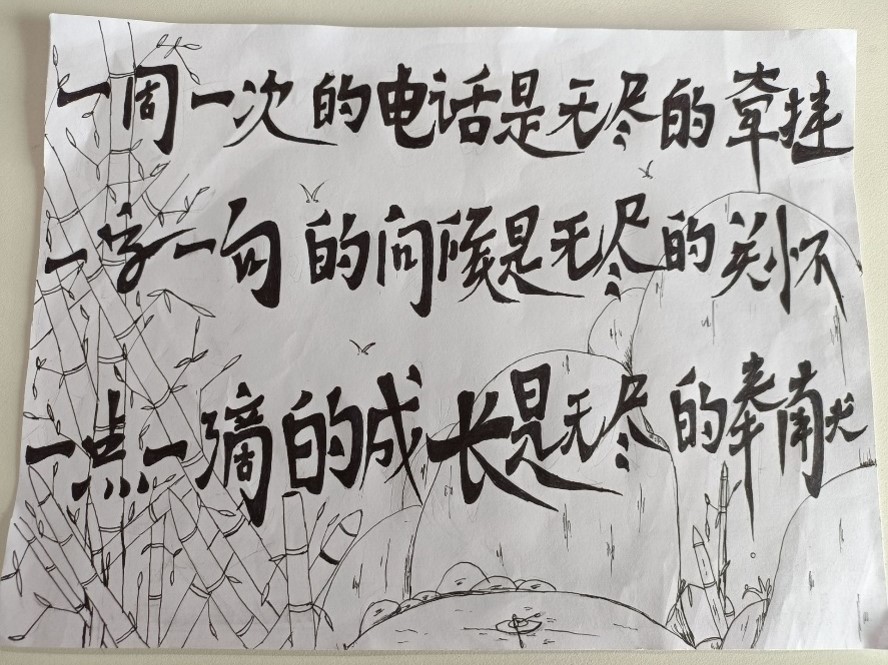 一周一次的电话是无尽的牵挂
一字一句的问候是无尽的关怀
一点一滴的成长是无尽的奉献